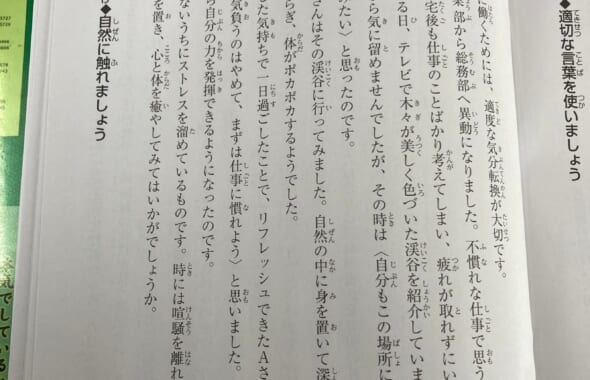 ◆適切な言葉を使いましょう
に働くためには、適度な気分転換が大切です。
業部から総務部へ異動になりました。不慣れな仕事で思う
宅後も仕事のことばかり考えてしまい、疲れが取れずにい
る日、テレビで木々が美しく色づいた渓谷を紹介していま
ら気に留めませんでしたが、その時は〈自分もこの場所に
みたい〉と思ったのです。
さんはその渓谷に行ってみました。自然の中に身を置いて深
らぎ、体がポカポカするようでした。
た気持ちで一日過ごしたことで、リフレッシュできたAさ
気負うのはやめて、まずは仕事に慣れよう〉と思いました。
ら自分の力を発揮できるようになったのです。
ないうちにストレスを溜めているものです。時には喧騒を離れ
を置き、心と体を癒やしてみてはいかがでしょうか。
◆自然に触れましょう
気でしている